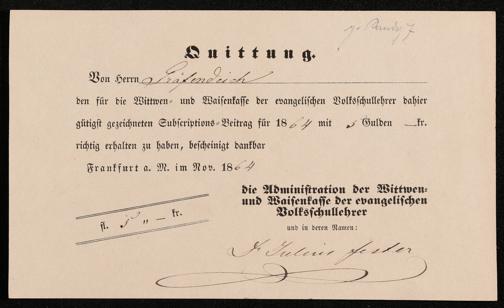 Quittung.
Von Herrn Gräfendeich
den für die Wittwen- und Waisenkasse der evangelischen Volksschullehrer dahier
gütigst gezeichneten Subscriptions-Beitrag für 1864 mit 5 Gulden — kr.
richtig erhalten zu haben, bescheinigt dankbar
Frankfurt a. M. im Nov. 1864
die Administration der Wittwen-
und Waisenkasse der evangelischen
Volksschullehrer
fl. 5 " — kr.
und in deren Namen:
Dr Julius Fester